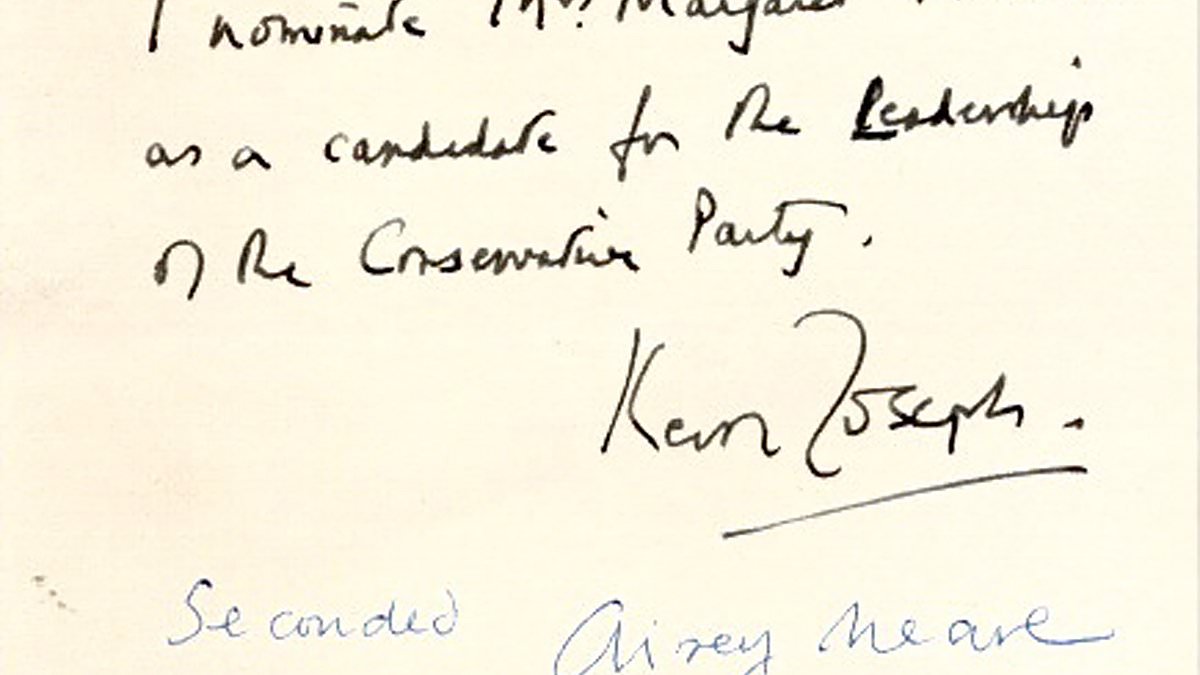 I nominate Mrs. Margaret
as a candidate for the Leadership
of the Conservative Party.
Keith Joseph.
Seconded Airey Neave